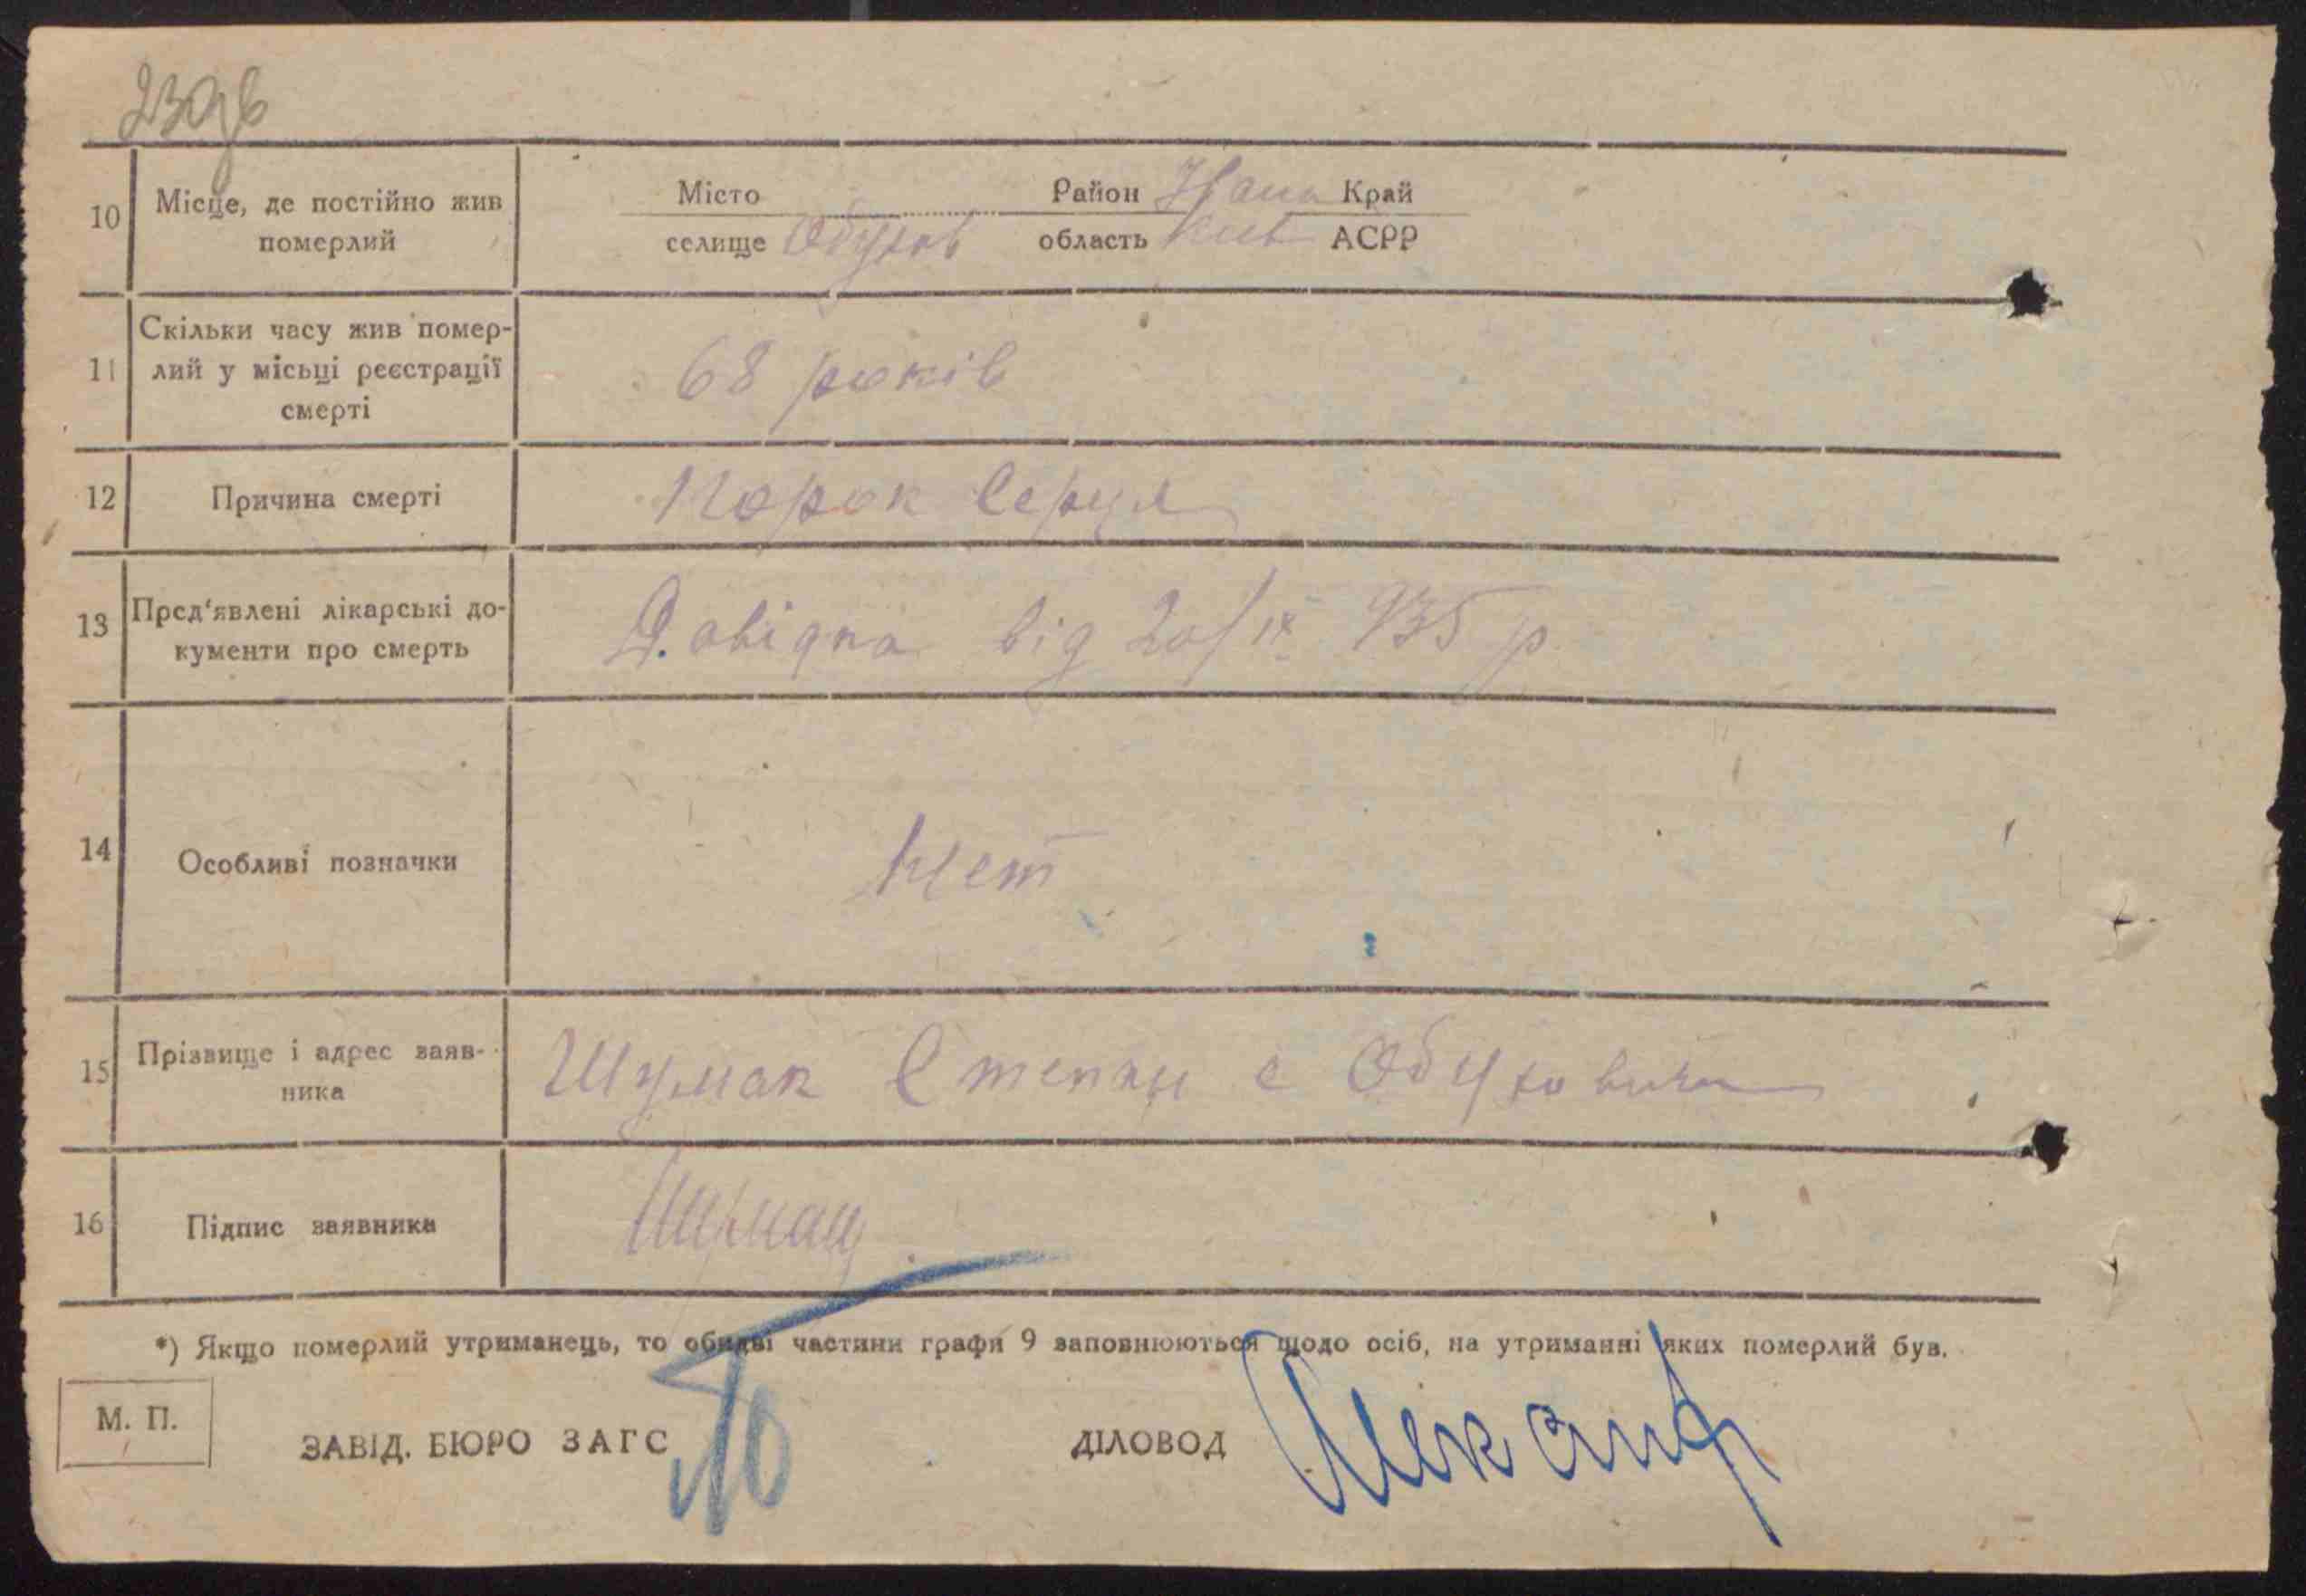 10 Місце, де постійно жив
померлий
Місто Район Край
селище Обухов область Киев АСРР
11 Скільки часу жив помер-
лий у місьці реєстрації
смерті
68 років
12 Причина смерті Порок Серця
13 Пред'явлені лікарські до-
кументи про смерть
Довідка від 20/IX 935 р
14 Особливі позначки Нет
15 Прізвище і адрес заяв-
ника
Шумак Степан с
16 Підпис заявника
*) Якщо померлий утриманець, то обидві частини графи 9 заповнюються щодо осіб, на утриманні яких померлий був.
М. П.
ЗАВІД. БЮРО ЗАГС ДІЛОВОД